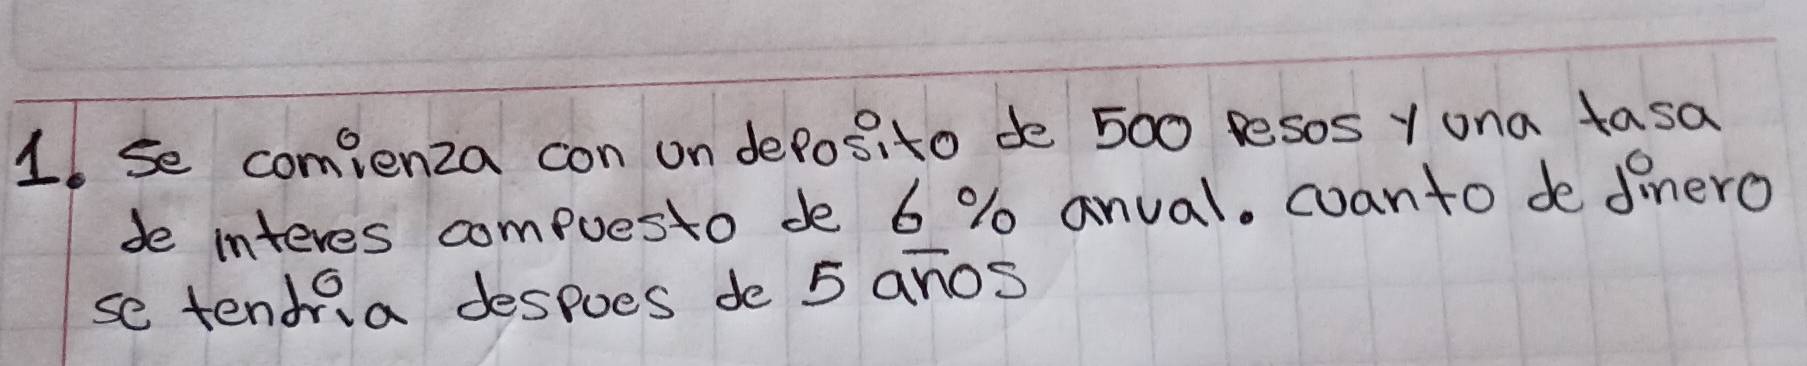 1. Se comienza con un deposito de 500 pesos y una tasa
de interes compuesto de 6 % anual. cuanto de dinero
se tendria despues de 5 años